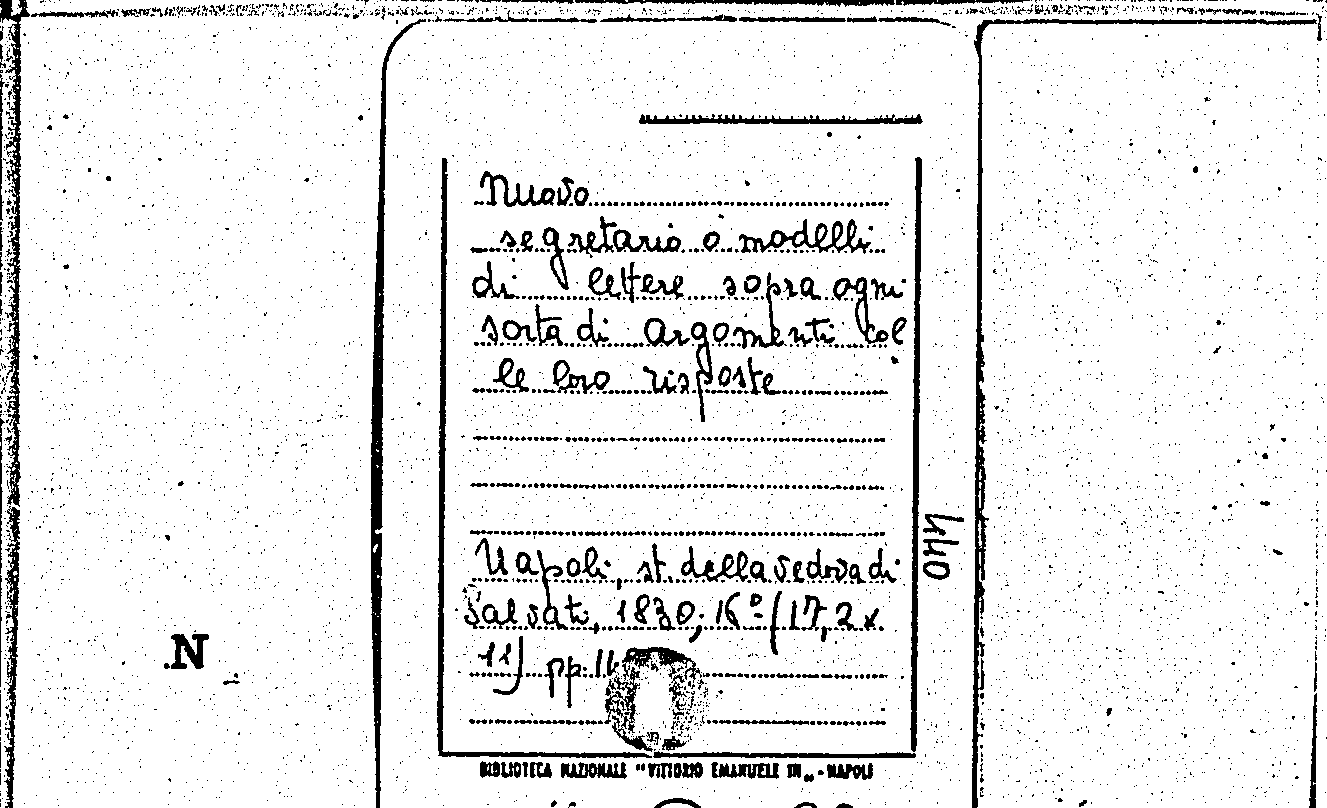 Nuovo
segretario o modelli
di lettere sopra ogni
sorta di argomenti col
le loro risposte
Napoli, st. della vedova di
Salvati, 1830; 16º (17,2 x
11) pp.
440
N
BIBLIOTECA NAZIONALE "VITTORIO EMANUELE III" - NAPOLI